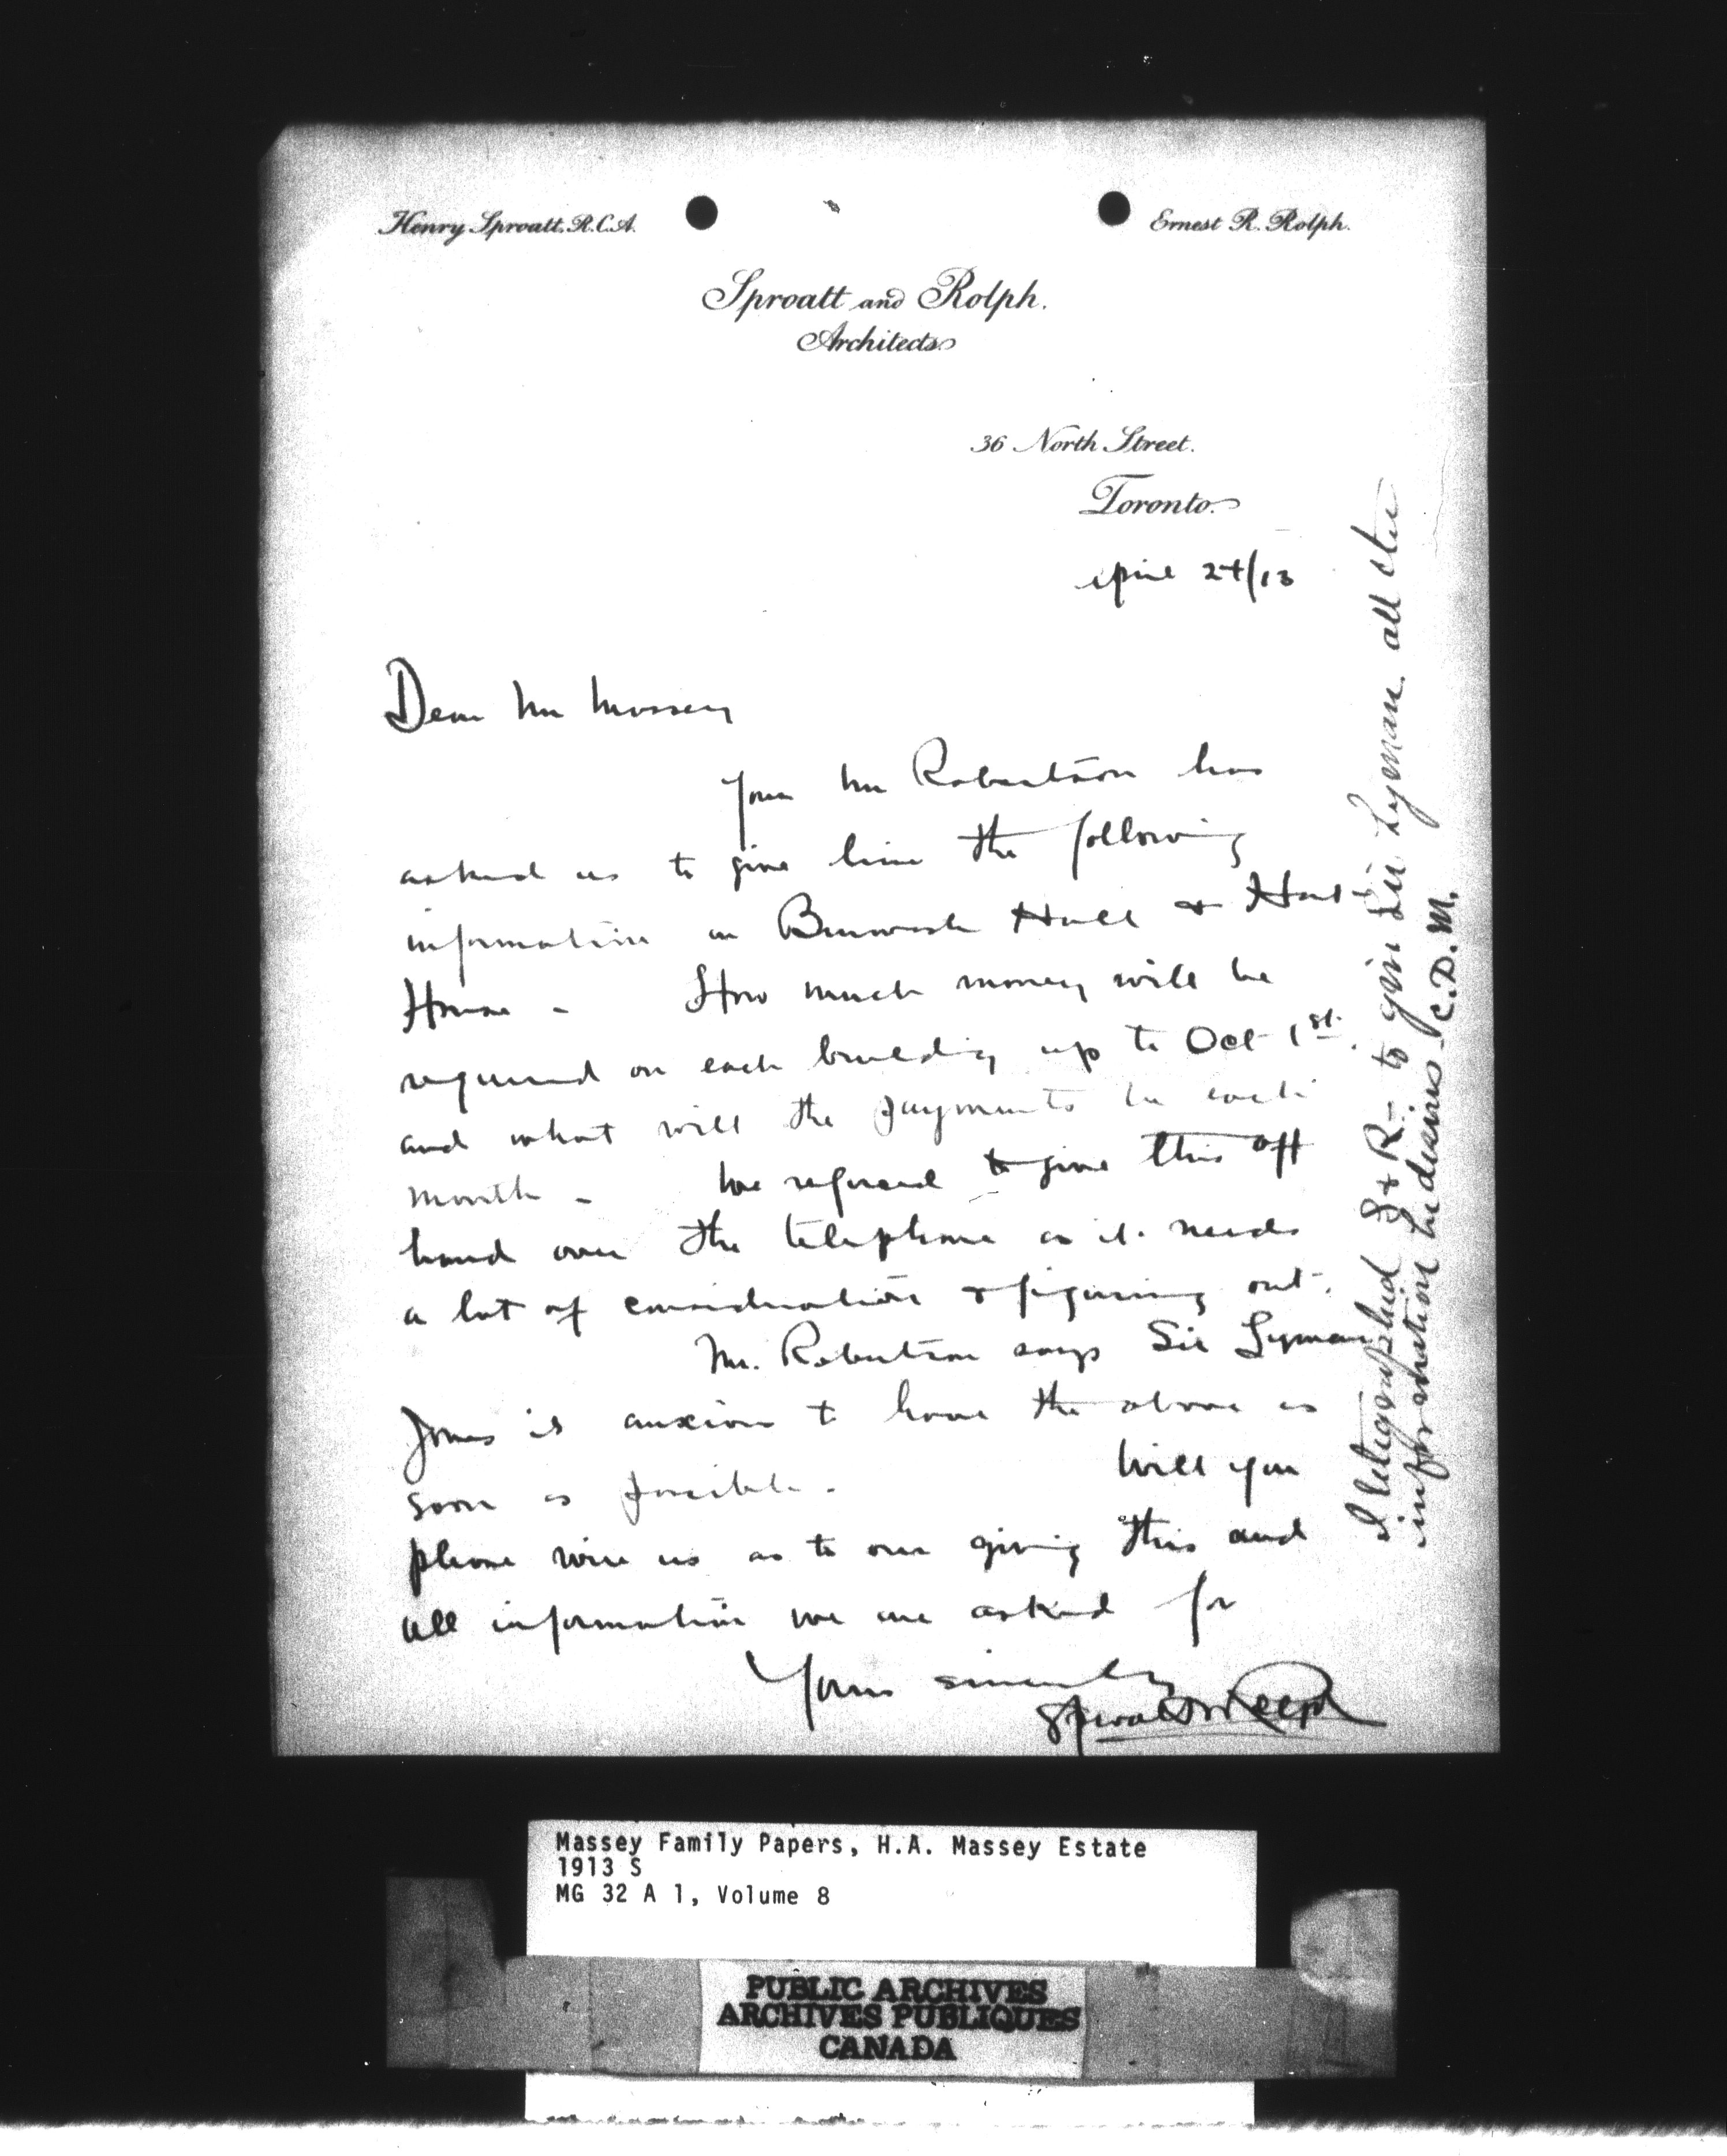 Henry Sproatt, R.C.A.
Ernest R. Rolph.
Sproatt and Rolph.
Architects
36 North Street.
Toronto.
April 24/13
Dear Mr Massey
Your Mr Robertson has
asked us to give him the following
information on Burwash Hall & Hart
House - How much money will be
required on each building up to Oct 1st.
and what will the payments be each
month - We refused to give this off
hand over the telephone as it needs
a lot of consideration & figuring out.
Mr. Robertson says Sir Lyman
Jones is anxious to have the above as
soon as possible. Will you
please wire us as to our giving this and
all information we are asked for
Yours sincerely
Sproatt & Rolph
I telegraphed S & R - to give Sir Lyman all the
information he desires. C.D.M.
Massey Family Papers, H.A. Massey Estate
1913 S
MG 32 A 1, Volume 8
PUBLIC ARCHIVES
ARCHIVES PUBLIQUES
CANADA